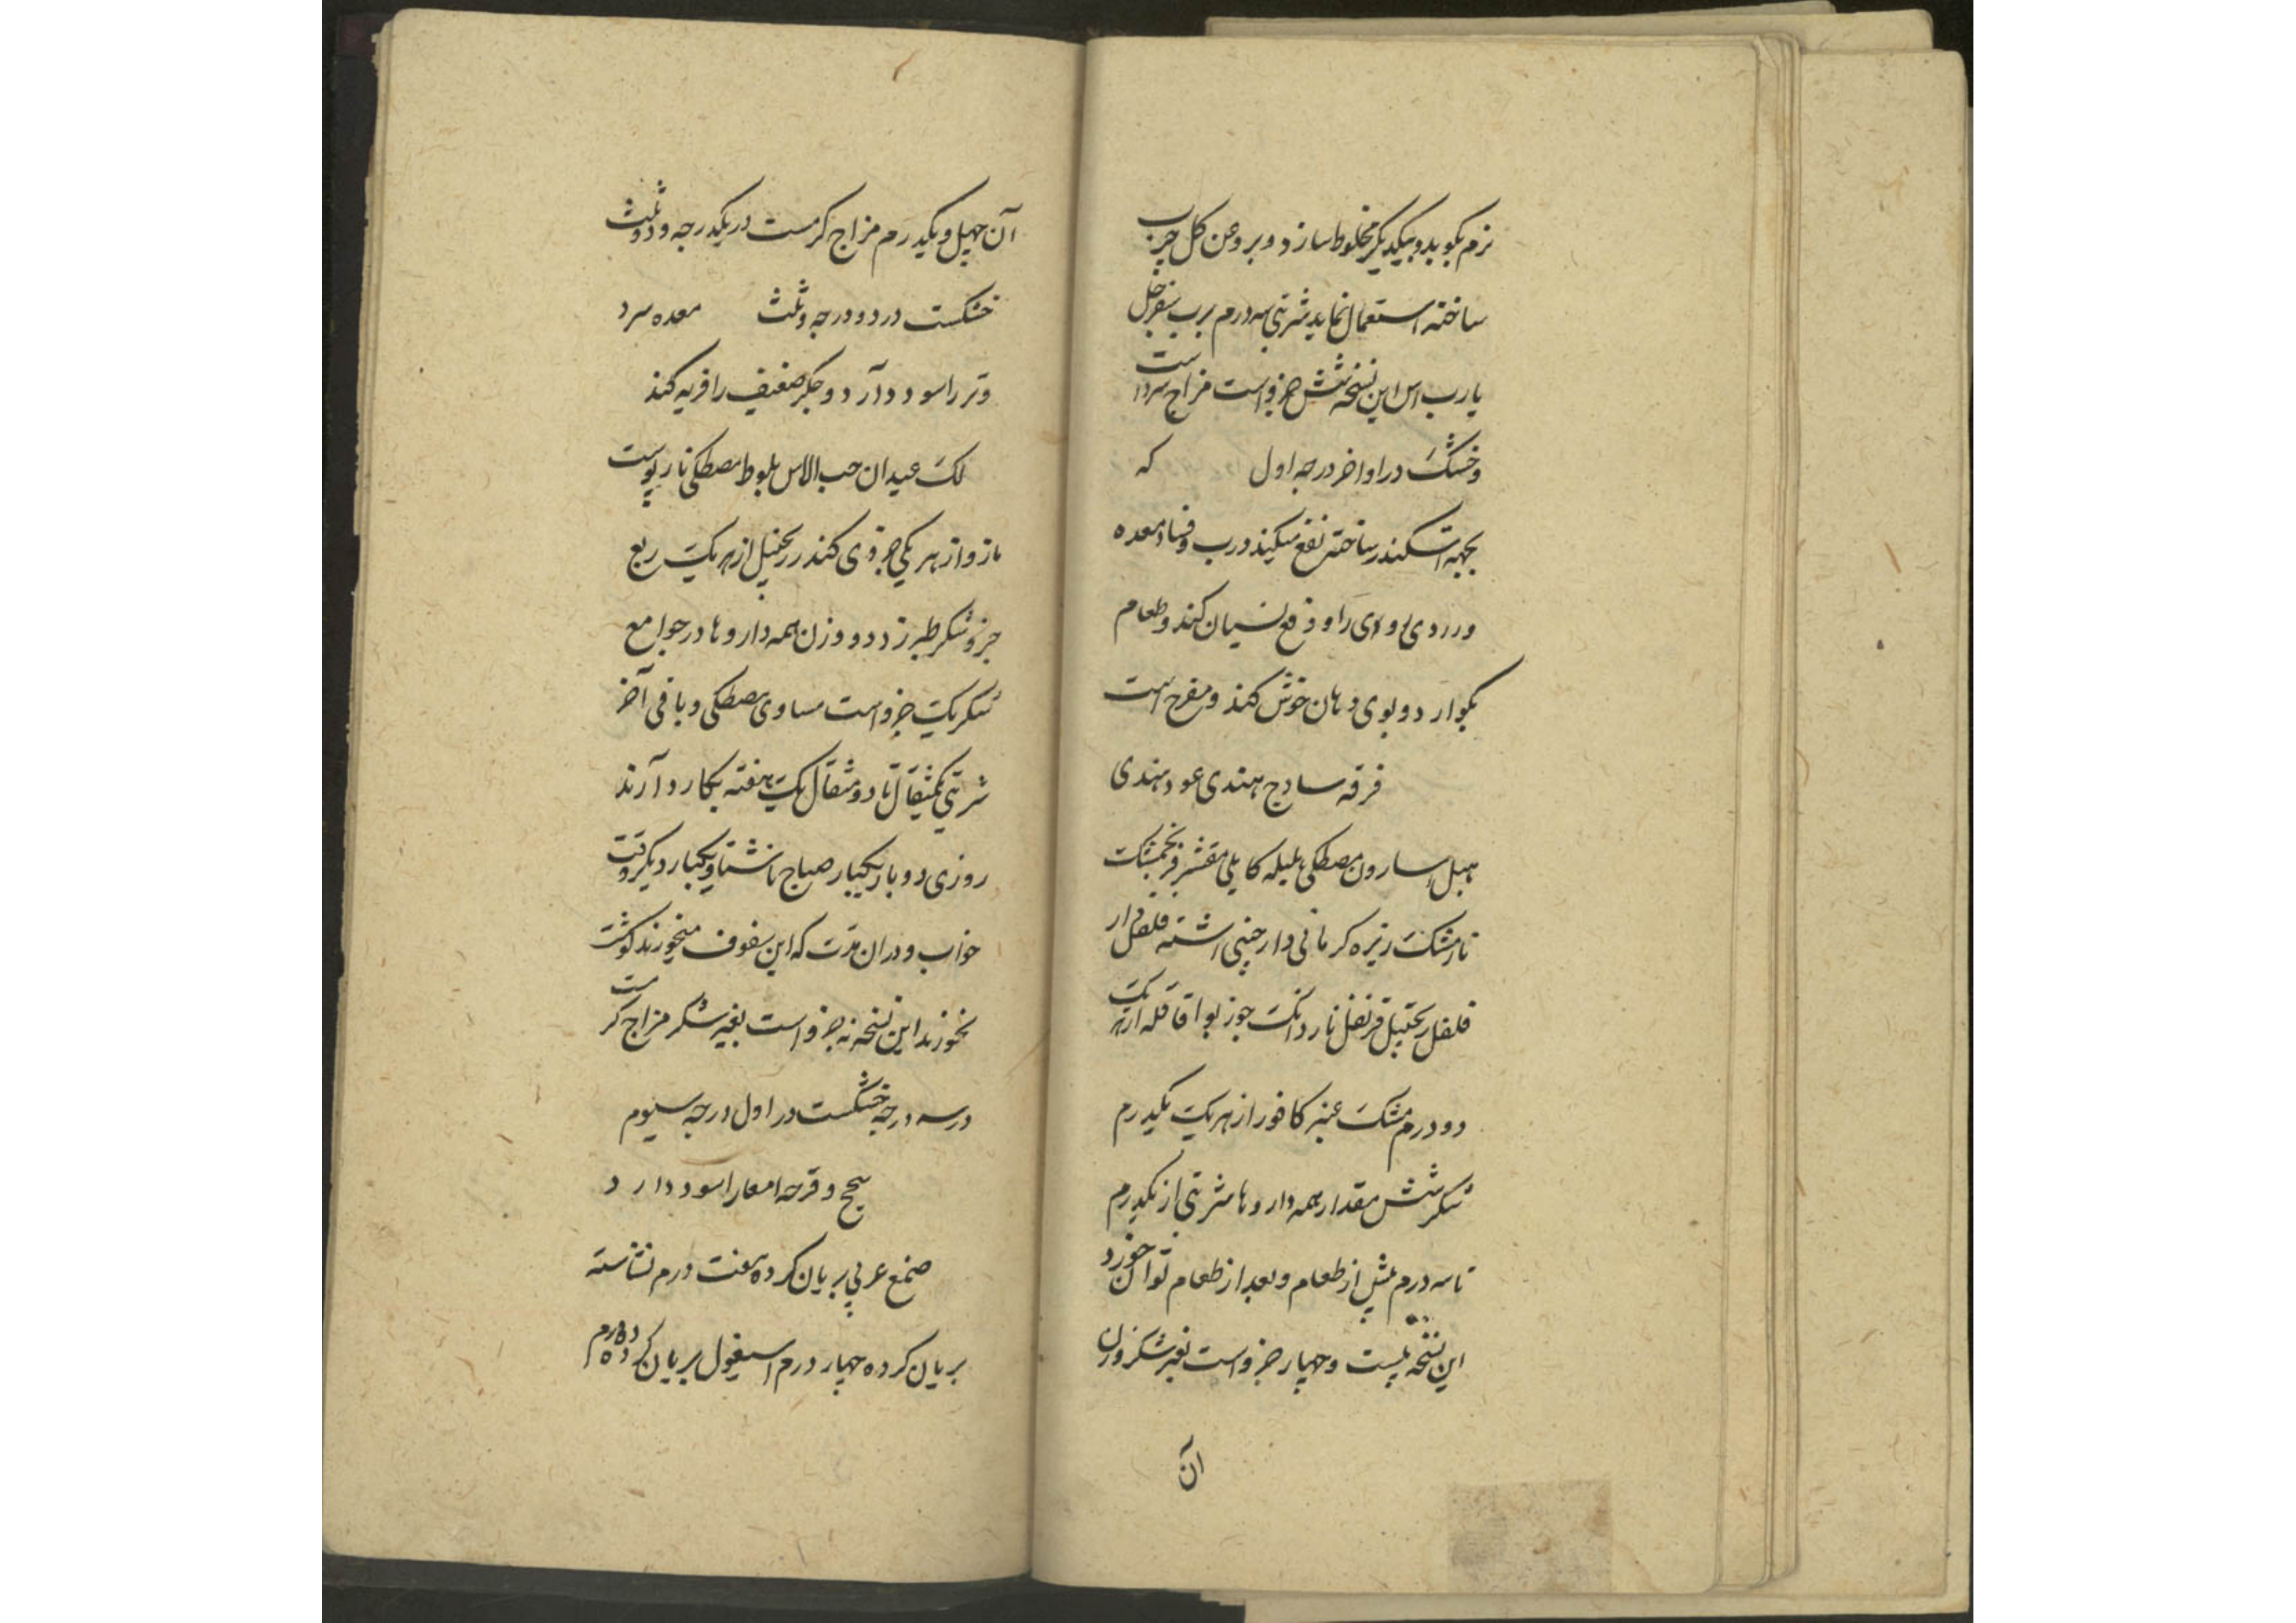 نرم بکوبد و بیکدیکر مخلوط سازد و بروغن کل چرب
ساخته استعمال نماید شربتی سه درم برب سفرجل
یا رب اس این نسخه شش جزو است مزاج سرد است
و خشک در اواخر درجه اول که
بجهه اسکندر ساخته نفع میکند درب و فساد معده
و زردی روی را و دفع نسیان کند و طعام
بکوارد و بوی دهان خوش کند و مفرح است
قرفه سادج هندی عود هندی
هیل اسارون مصطکی هلیله کابلی مقشر فرنجمشک
نارمشک زیره کرمانی دارچینی اشنه فلفل دار
فلفل زنجبیل قرنفل ناردانک جوز بوا قاقله از هریک
دو درم مشک عنبر کافور از هریک یکدرم
شکر شش مقدار همه داروها شربتی از یکدرم
تا سه درم پیش از طعام و بعد از طعام توان خورد
این نسخه بیست و چهار جزو است بغیر شکر وزن
آن
آن چهل و یکدرم مزاج کرمست در یکدرجه و دو ثلث
خشکست در دو درجه و ثلث معده سرد
و تر را سود دارد و جکر ضعیف را فربه کند
لک عیدان حب الاس بلوط مصطکی نار پوست
مازو از هریکی جزوی کندر زنجبیل از هریک ربع
جزو شکر طبرزد دو وزن همه داروها در جوامع
شکر یک جزو است مساوی مصطکی و باقی آخر
شربتی یکمثقال تا دو مثقال یک هفته بکار دارند
روزی دو بار یکبار صباح ناشتا و یکبار دیکر وقت
خواب و در ان مدت که این سفوف میخورند کوشت
نخورند این نسخه نه جزو است بغیر شکر مزاج کرمست
در سه درجه خشکست در اول درجه سیوم
سحج و قرحه امعا را سود دارد
صمغ عربی بریان کرده هفت درم نشاسته
بریان کرده چهار درم اسبغول بریان کرده ده درم